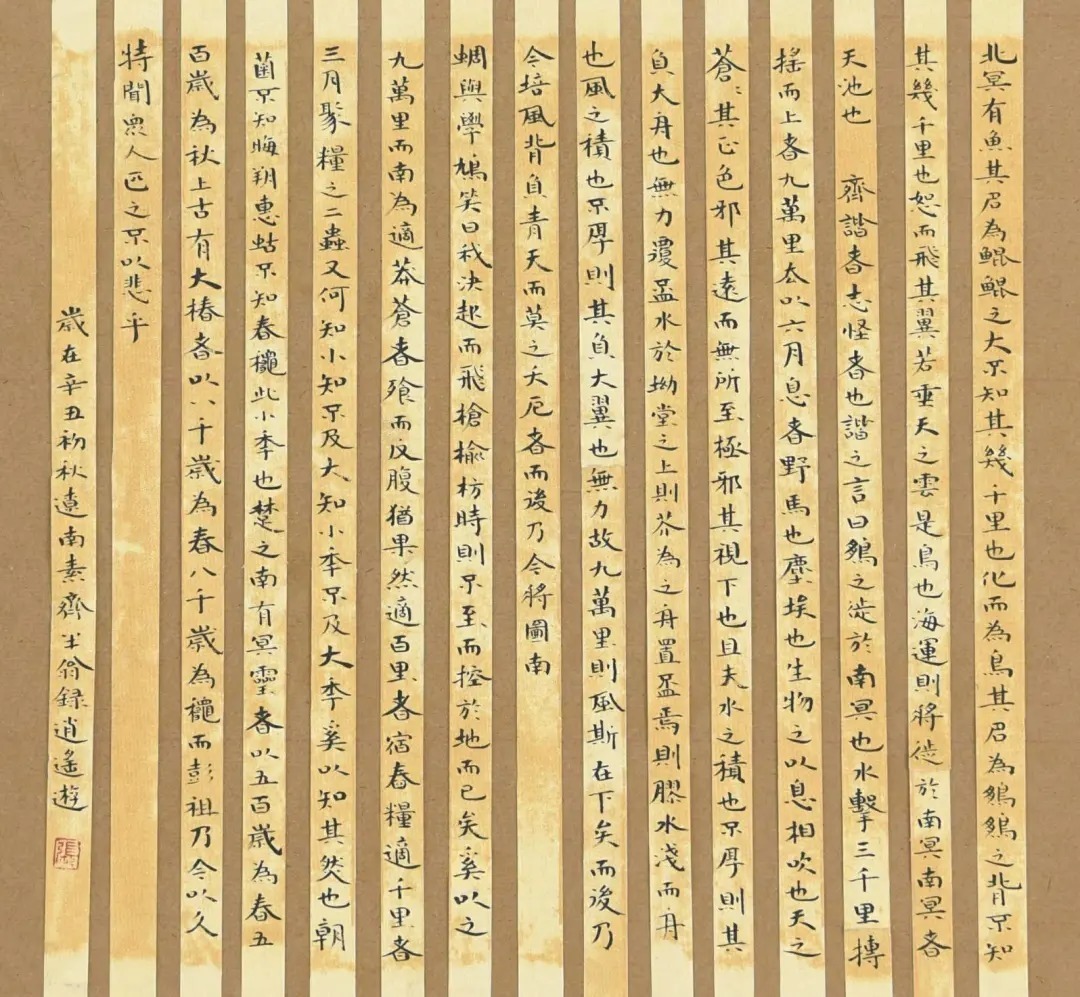 北冥有魚其名為鯤鯤之大不知其幾千里也化而為鳥其名為鵬鵬之背不知
其幾千里也怒而飛其翼若垂天之雲是鳥也海運則將徙於南冥南冥者
天池也 齊諧者志怪者也諧之言曰鵬之徙於南冥也水擊三千里摶
搖而上者九萬里去以六月息者野馬也塵埃也生物之以息相吹也天之
蒼〻其正色邪其遠而無所至極邪其視下也且夫水之積也不厚則其
負大舟也無力覆盃水於坳堂之上則芥為之舟置盃焉則膠水淺而舟
也風之積也不厚則其負大翼也無力故九萬里則風斯在下矣而後乃
今培風背負青天而莫之夭閼者而後乃今將圖南
蜩與學鳩笑曰我決起而飛槍榆枋時則不至而控於地而已矣奚以之
九萬里而南為適莽蒼者飡而反腹猶果然適百里者宿舂糧適千里者
三月聚糧之二蟲又何知小知不及大知小年不及大年奚以知其然也朝
菌不知晦朔惠蛄不知春龝此小年也楚之南有冥靈者以五百歲為春五
百歲為秋上古有大椿者以八千歲為春八千歲為龝而彭祖乃今以久
特聞眾人匹之不以悲乎
歲在辛丑初秋遼南素齋半翁録逍遙遊